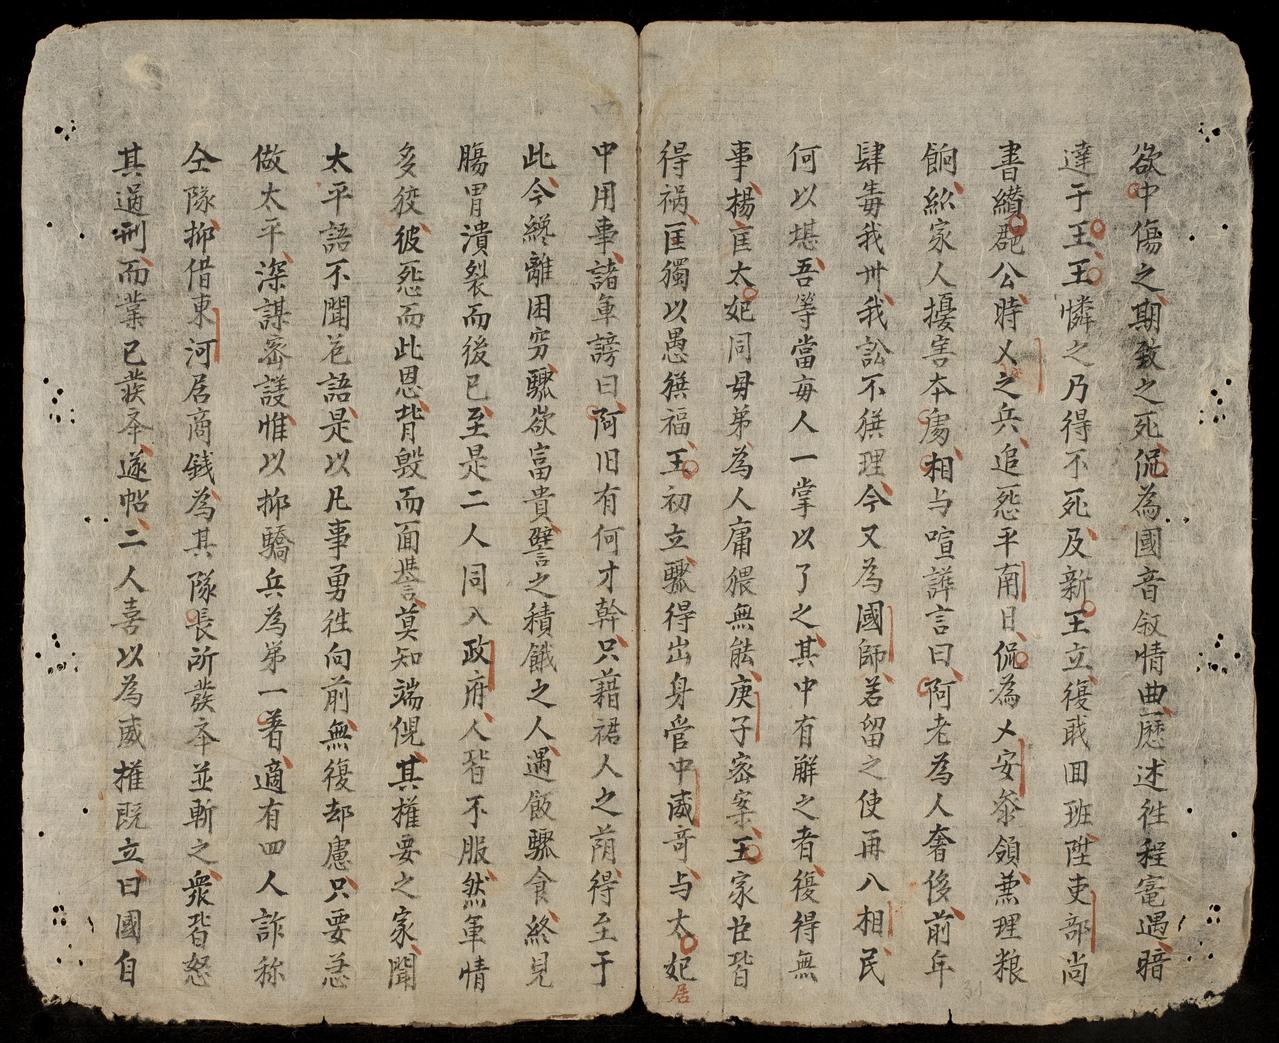 欲中傷之期致之死侃為國音叙情曲歷述徃程寃遇暗
達于王王憐之乃得不死及新王立復戢囬班陞吏部尚
書纉郡公時乂之兵追怨平南日侃為乂安叅領兼理粮
餉縱家人擾害本處相与喧譁言曰阿老為人奢侈前年
肆毒我州我訟不獲理今又為國師若留之使再入相民
何以堪吾等當每人一掌以了之其中有觧之者復得無
事楊匡太妃同母弟為人庸猥無能庚子密案王家臣皆
得禍匡獨以愚獲福王初立驟得出身管中威奇与太妃
居
中用事諸軍謗曰阿旧有何才幹只藉裙人之蔭得至于
此今纔離困穷驟欲富貴譬之積餓之人遇飯驟食終見
腸胃潰裂而後已至是二人同入政府人皆不服然軍情
多狡彼怨而此恩背毁而面譽莫知端倪其權要之家聞
太平語不聞危語是以凡事勇徃向前無復却慮只要恙
做太平深謀密護惟以抑驕兵為第一着適有四人詐称
仝隊抑借東河居商錢為其隊長所發夲並斬之衆皆怒
其過刑而業已發夲遂帖二人喜以為威權既立曰國自